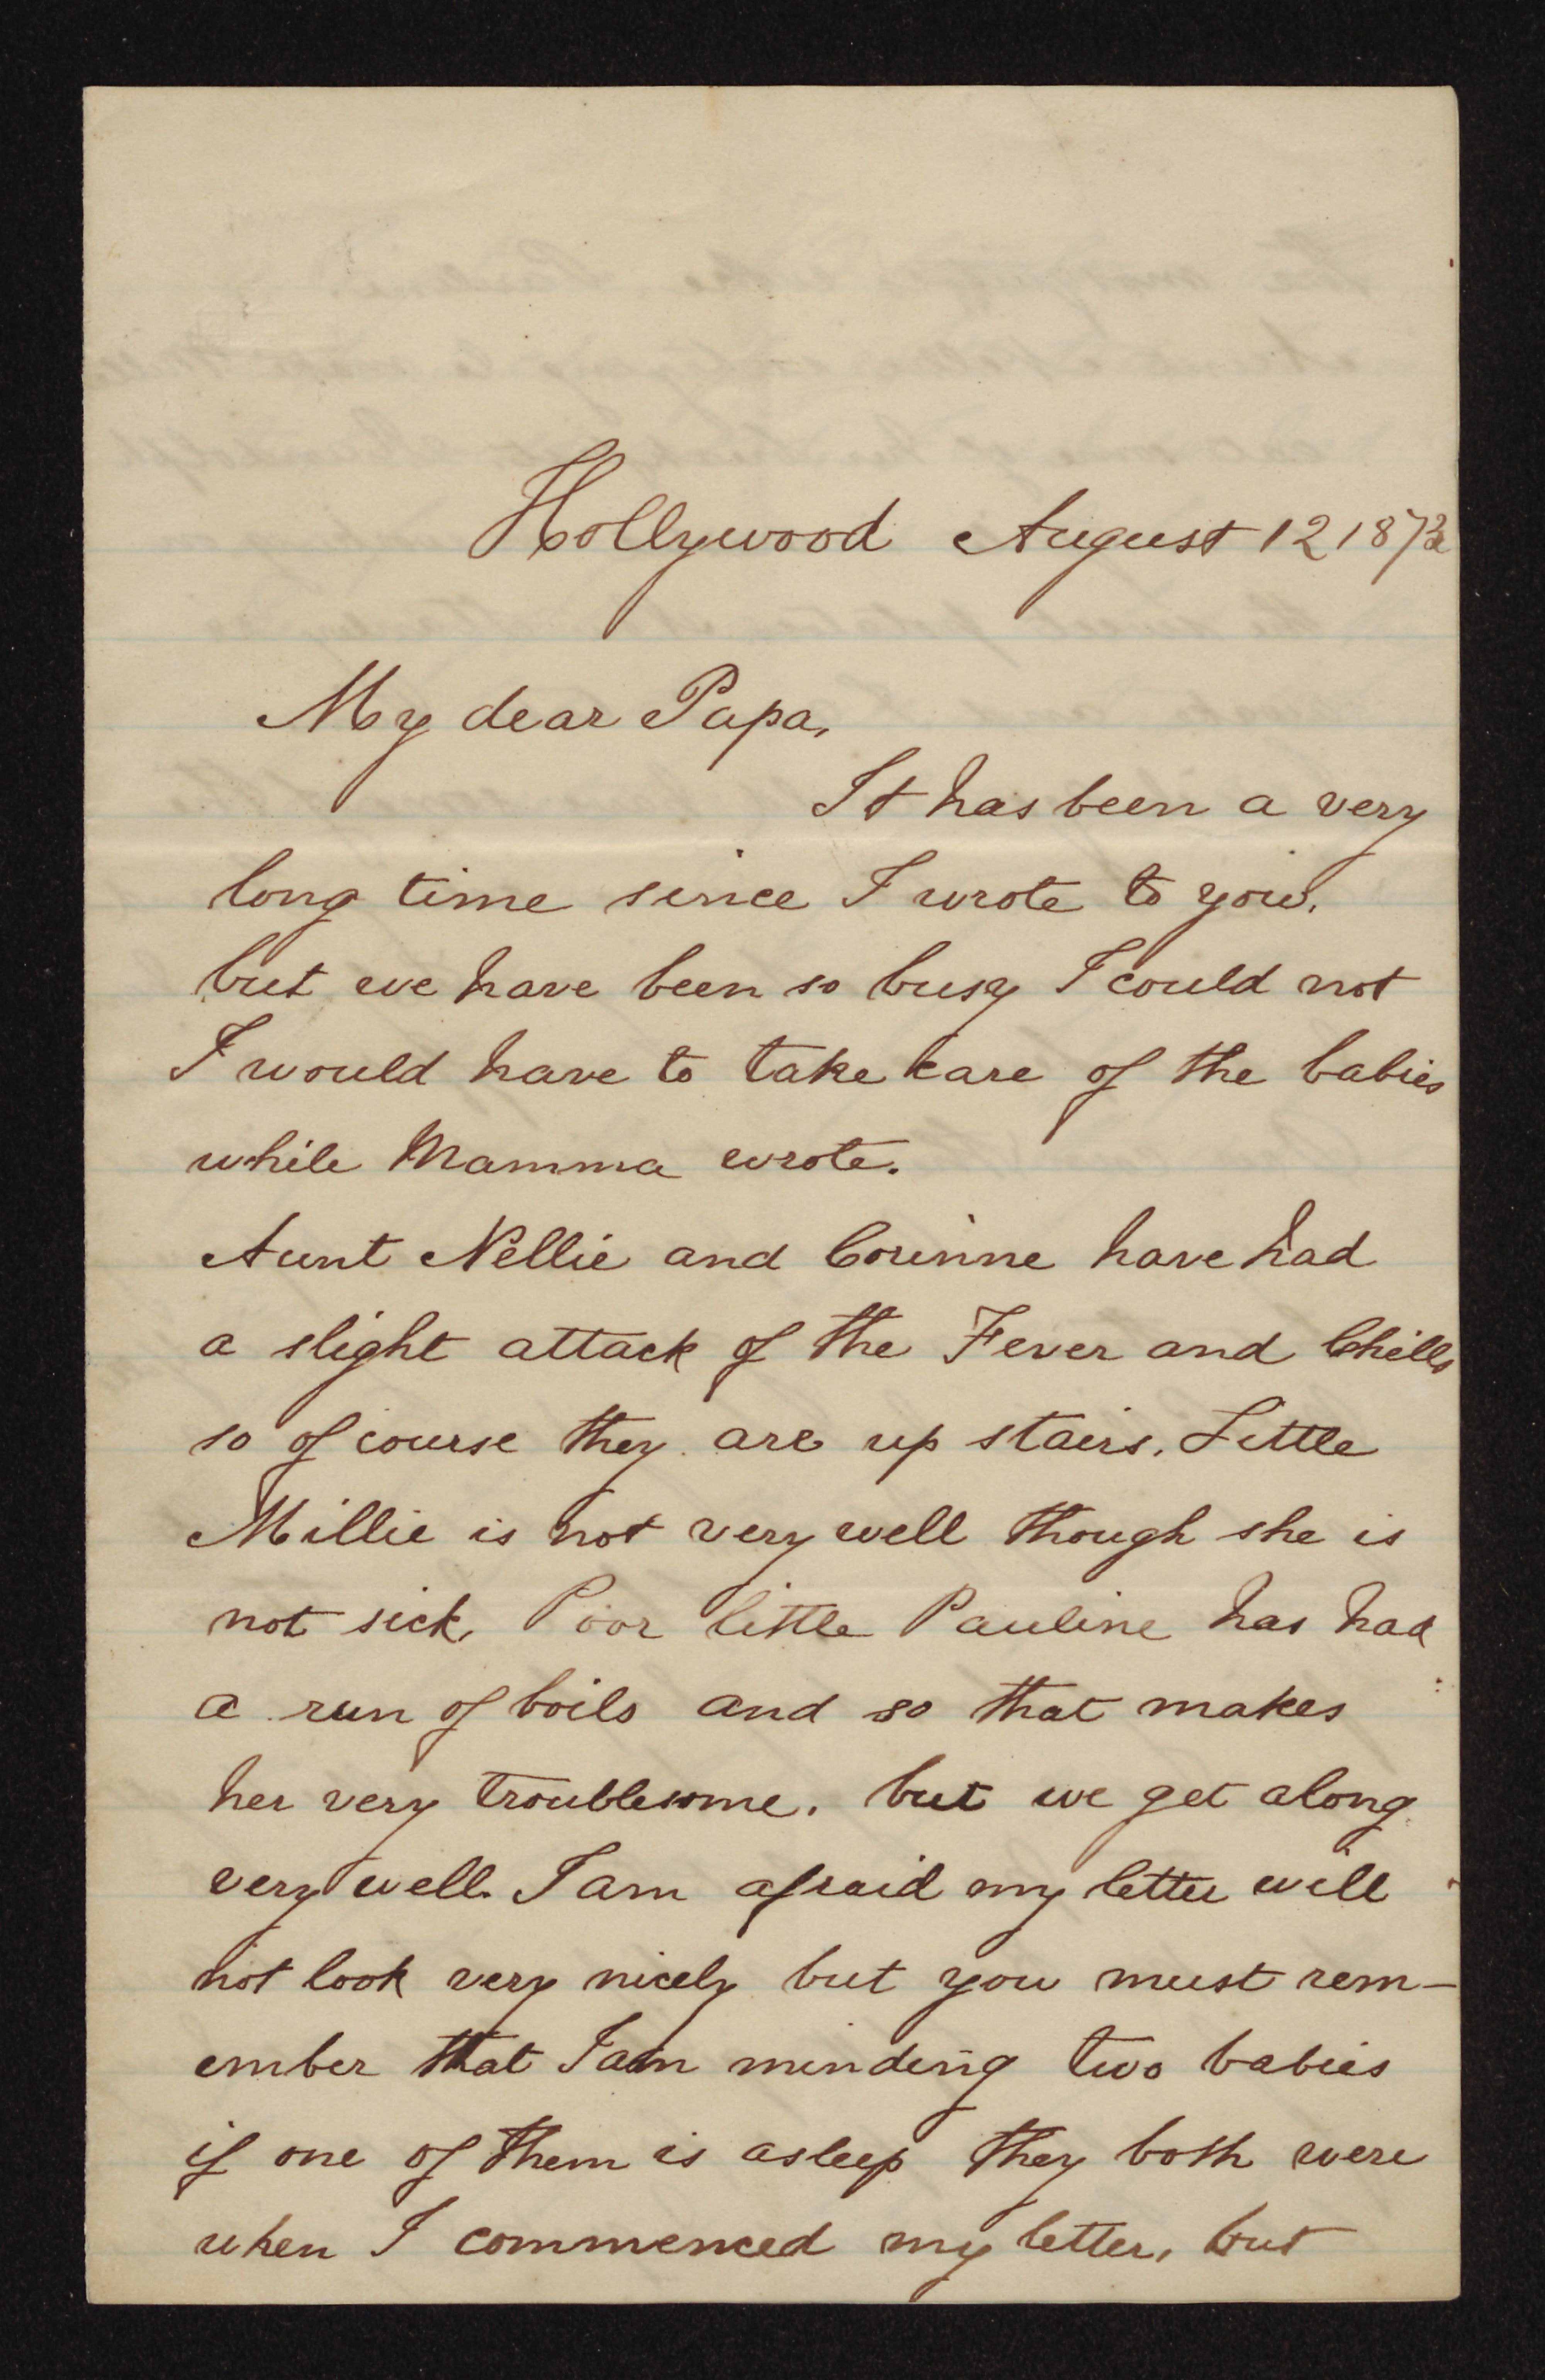 Hollywood August 12 1873
My dear Papa,
It has been a very
long time since I wrote to you,
but we have been so busy I could not
I would have to take care of the babies
while Mamma wrote.
Aunt Nellie and Corinne have had
a slight attack of the Fever and Chills
so of course they are up stairs. Little
Millie is not very well though she is
not sick, Poor little Pauline has had
a run of boils and so that makes
her very troublesome. but we get along
very well. I am afraid my letter will
not look very nicely but you must rem-
ember that I am minding two babies
if one of them is asleep they both were
when I commenced my letter, but